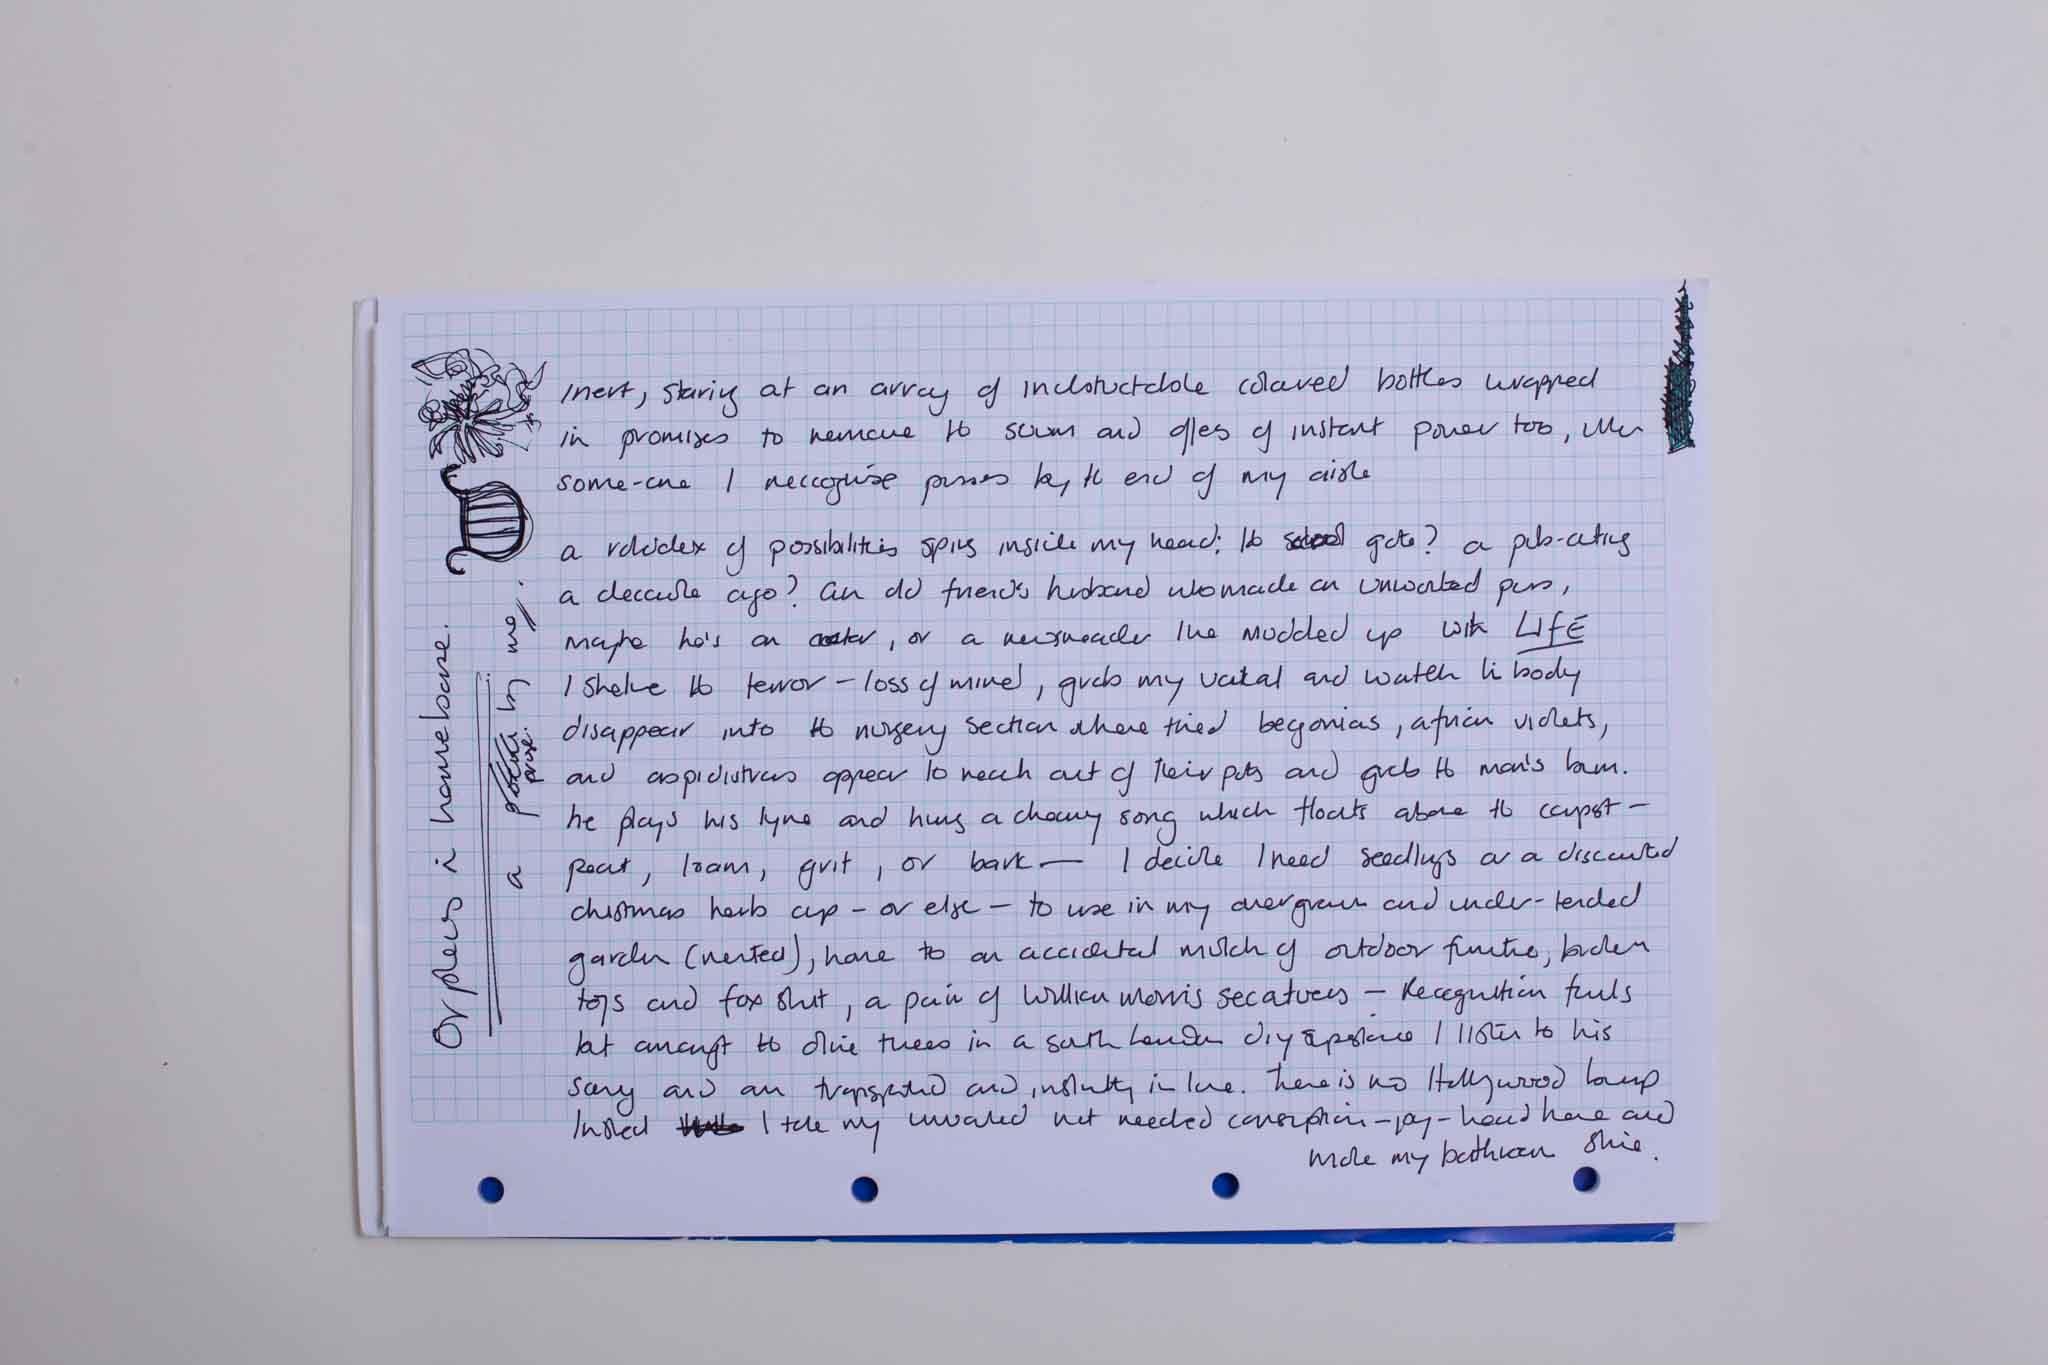 Orpheus in homebase.
a prose. by me.
Inert, staring at an array of indistructable coloured bottles wrapped
in promises to remove the scum and offers of instant power too, when
some-one I reccognise passes by the end of my aisle
a rolodex of possibilities spins inside my head: the school gate? a pub-outing
a deccade ago? an old friend's husband who made an unwanted pass,
maybe he's an actor, or a newsreader I've muddled up with LIFE
I shelve the terror - loss of mind, grab my vakal and watch his body
disappear into the nursery section where tired begonias, african violets,
and aspidistras appear to reach out of their pots and grab the man's bum.
he plays his lyre and hums a chewy song which floats above the compost -
peat, loam, grit, or bark — I decide I need seedlings or a discounted
christmas herb cup - or else - to use in my overgrown and under-tended
garden (rented), home to an accidental mulch of outdoor furniture, broken
toys and fox shit, a pair of William Morris secatuers - Recognition fails
but amongst the olive trees in a south London diy I listen to his
song and am transported and, instantly in love. There is no Hollywood bump
Instead I take my unwanted not needed consumption - joy - hoard home and
make my bathroom shine.